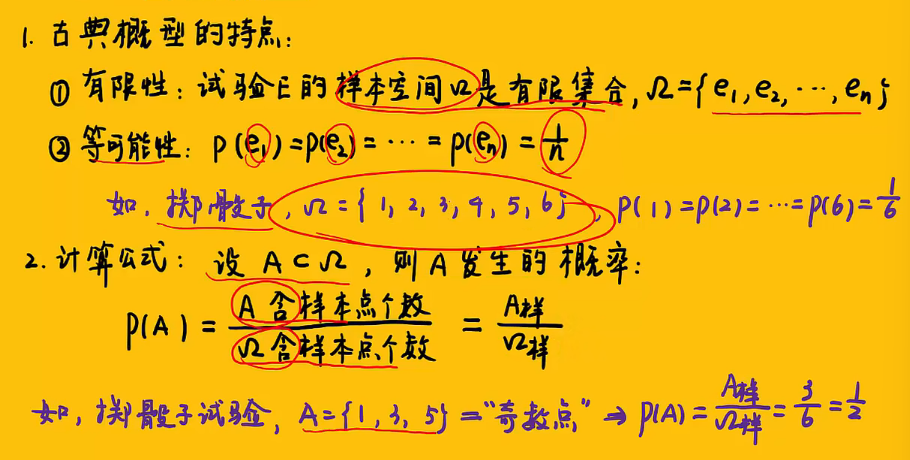 1. 古典概型的特点:
① 有限性: 试验E的样本空间Ω是有限集合, Ω={e₁,e₂,…,eₙ}
② 等可能性: P(e₁)=P(e₂)=…=P(eₙ)=1/n
如, 掷骰子, Ω={1,2,3,4,5,6}, P(1)=P(2)=…=P(6)=1/6
2. 计算公式: 设A⊂Ω, 则A发生的概率:
P(A)=A含样本点个数/Ω含样本点个数=A样/Ω样
如, 掷骰子试验, A={1,3,5}="奇数点"⇒P(A)=A样/Ω样=3/6=1/2